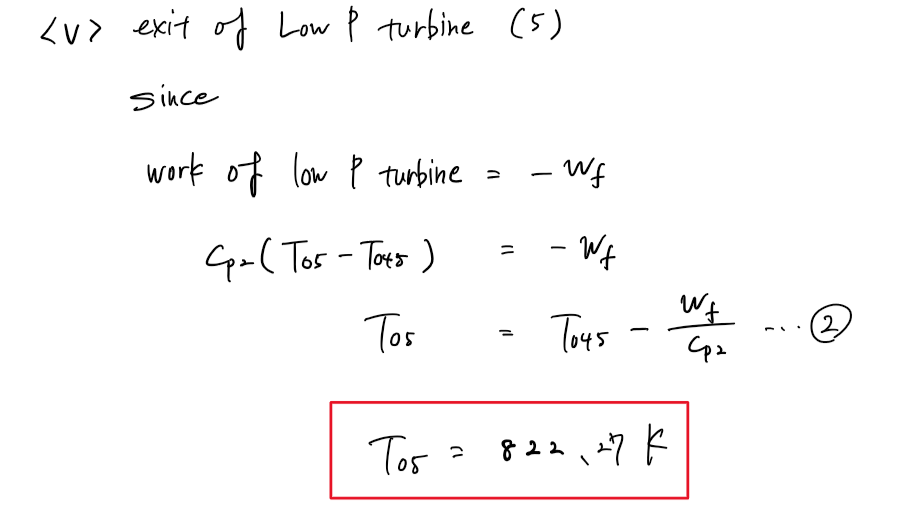 <V> exit of Low P turbine (5)
since
work of low P turbine = - Wf
Cp2 (T05 - T045) = - Wf
T05 = T045 - Wf/Cp2 ... ②
T05 = 822.27 K